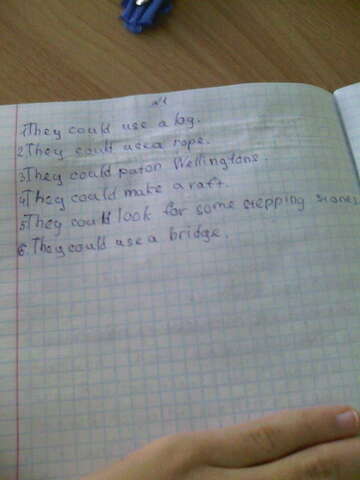 №1
1. They could use a log.
2. They sould use a rope.
3. They could put on Wellingtons.
4. They could make a raft.
5. They could look for some stepping stones.
6. They could use a bridge.